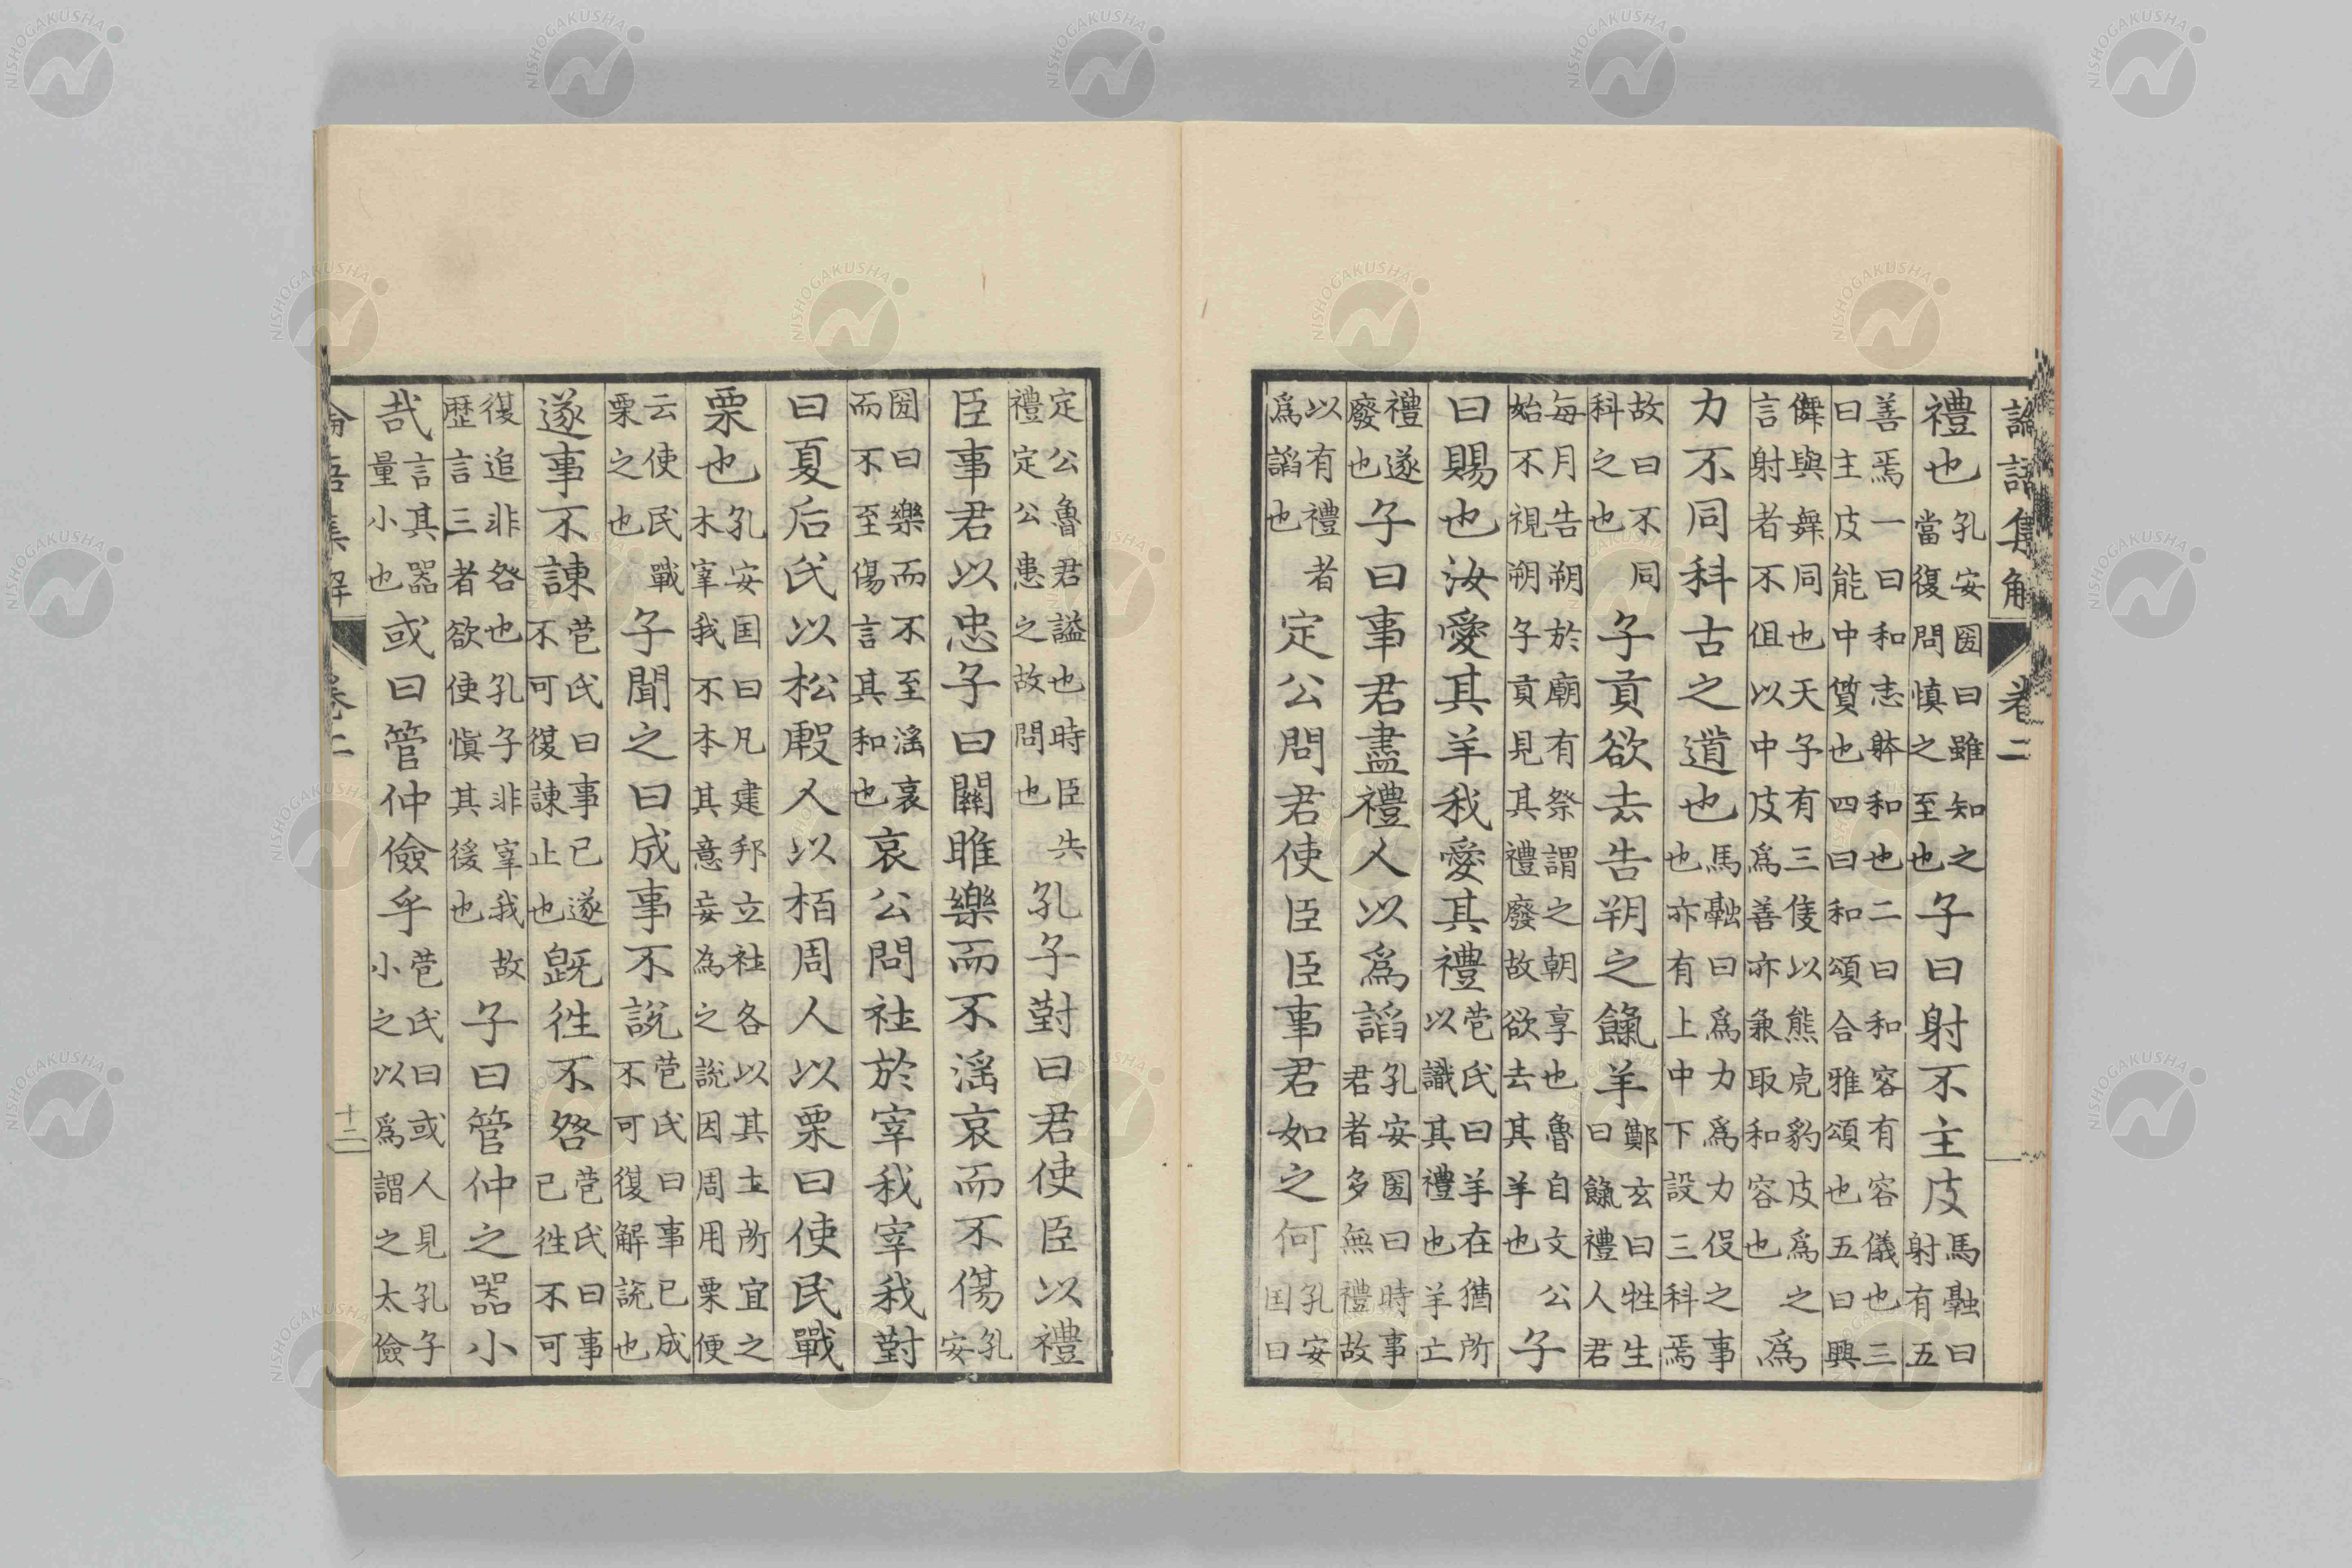 論語集解 卷二
禮也孔安圀曰雖知之當復問慎之至也子曰射不主皮馬融曰射有五
善焉一曰和志躰和也二曰和容有容儀也三曰主皮能中質也四曰和頌合雅頌也五曰興
儛與舞同也天子有三侯以熊虎豹皮爲之言射者不但以中皮爲善亦兼取和容也爲
力不同科古之道也馬融曰爲力爲力役之事也亦有上中下設三科焉
故曰不同科之也子貢欲去告朔之餼羊鄭玄曰牲生曰餼禮人君
每月告朔於廟有祭謂之朝享也魯自文公始不視朔子貢見其禮廢故欲去其羊也子
曰賜也汝愛其羊我愛其禮苞氏曰羊在猶所以識其禮也羊亡
禮遂廢也子曰事君盡禮人以爲謟孔安圀曰時事君者多無禮故
以有禮者爲謟也定公問君使臣臣事君如之何孔安囯曰
定公魯君謚也時臣失禮定公患之故問也孔子對曰君使臣以禮
臣事君以忠子曰關雎樂而不淫哀而不傷孔安
圀曰樂而不至淫哀而不至傷言其和也哀公問社於宰我宰我對
曰夏后氏以松殷人以栢周人以栗曰使民戰
栗也孔安囯曰凡建邦立社各以其土所宜之木宰我不本其意妄為之說因周用栗便
云使民戰栗之也子聞之曰成事不說苞氏曰事已成不可復解說也
遂事不諫苞氏曰事已遂不可復諫止也既徃不咎苞氏曰事已徃不可
復追非咎也孔子非宰我故歷言三者欲使慎其後也子曰管仲之器小
哉言其器量小也或曰管仲儉乎苞氏曰或人見孔子小之以爲謂之太儉
論語集解 卷二 十二